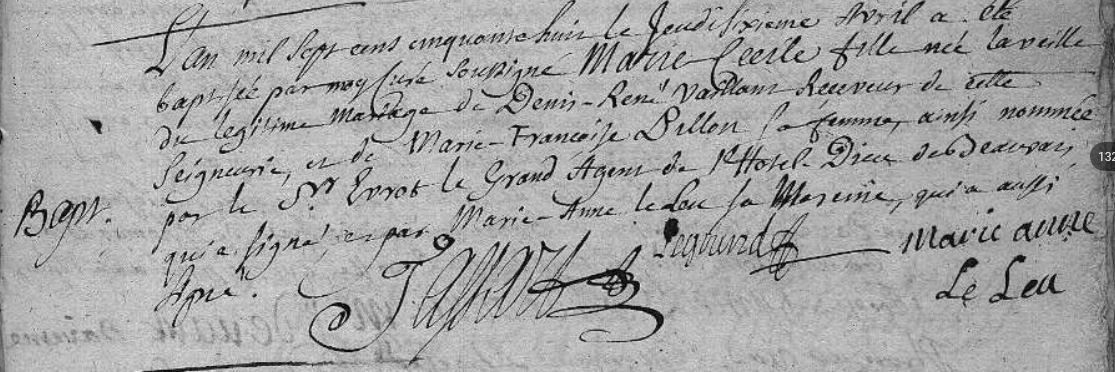 L'an mil Sept cens cinquante huit le Jeudi sixieme Avril a été
baptisée par moy Curé Soussigné Marie-Cecile fille née la veille
du legitime Mariage de Denis-René Vaillant Receveur de cette
Seigneurie, et de Marie-Françoise Dillon sa femme, ainsi nommée
Bapt.
par le Sr. Evrot le Grand Agent de l'Hotel-Dieu de Beauvais,
qui a signé, et par Marie-Anne le Leu sa Mareine, qui a aussi
signé.
Legrand
Marie anne
Le Leu